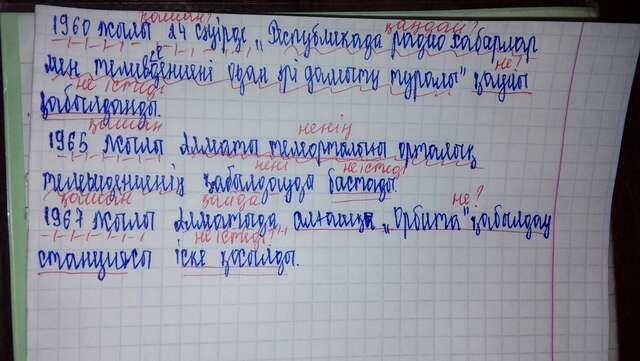 қашан? қандай?
1960 жылы 24 сәуірде „Республикада радио хабарлар
мен телевдениені одан әрі дамыту туралы" қаулы не?
не істеді
қабылданды.
қашан ненің
1965 жылы Алматы телеорталығы орталық
нені не істеді
телевиденениң қабылдауда бастады
қашан қайда не?
1967 жылы Алматыда алғашқы „Орбита" қабылдау
не істеді?
станциясы іске қосылды.